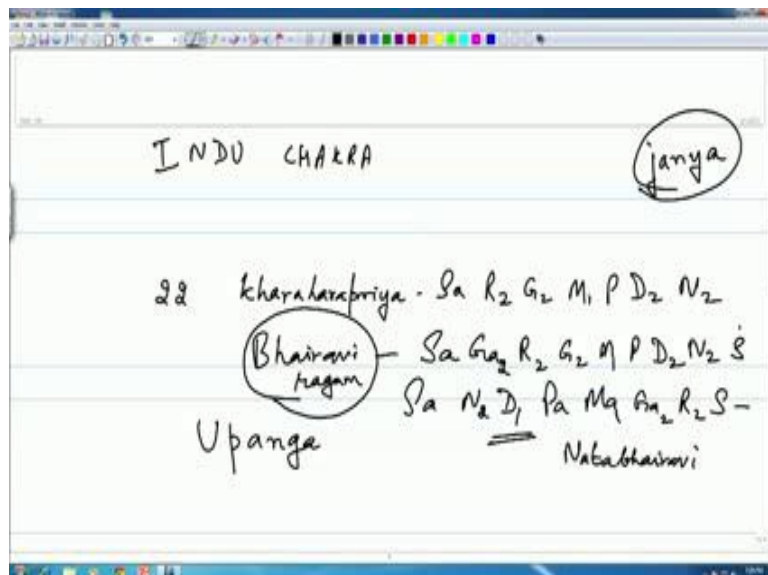 INDU CHAKRA
janya
22 Kharaharapriya - Sa R2 G2 M1 P D2 N2
Bhairavi ragam - Sa Ga2 R2 G2 M P D2 N2 Ṡ
Sa N2 D1 Pa Ma Ga2 R2 S -
Upanga
Natabhairavi